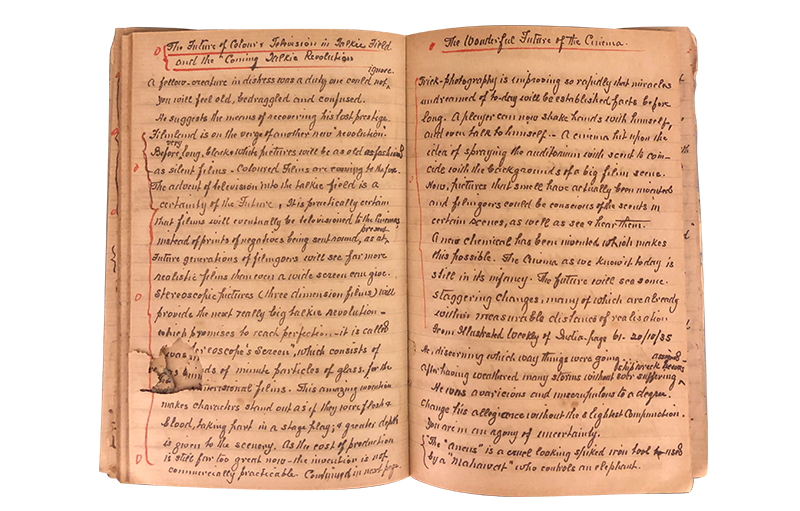 The Future of Colour & Television in Talkie Field
and the "Coming Talkie Revolution
ignore.
A fellow-creature in distress was a duty one could not
You will feel old, bedraggled and confused.
He suggests the means of recovering his lost prestige.
Filmland is on the verge of another new revolution.
very
Before long, black & white pictures will be as old as fashioned
as silent films - Coloured Films are coming to the fore.
The advent of television into the talkie field is a
certainty of the Future, It is practically certain
that films will eventually be televisioned to the Cinemas
present.
instead of prints of negatives being sent round, as at
Future generations of filmgoers will see far more
realistic films than even a wide screen can give.
Stereoscopic pictures (three dimension films) will
provide the next really big talkie revolution -
which promises to reach perfection. it is called
"screen", which consists of
of minute particles of glass, for the
films. This amazing invention
makes characters stand out as if they were flesh &
blood, taking part in a stage play; & greater depth
is given to the scenery. As the cost of production
is still far too great now - the invention is not
commercially practicable. Continued in next page.
The Wonderful Future of the Cinema.
Trick-photography is improving so rapidly that miracles
undreamed of to-day will be established facts before
long. A player can now shake hands with himself,
and even talk to himself. - A cinema hit upon the
idea of spraying the auditorium with scent to coin-
cide with the backgrounds of a big film scene.
Now, pictures that smell have actually been invented
and filmgoers could be conscious of the scents in
certain scenes, as well as see & hear them.
A new chemical has been invented which makes
this possible. The Cinema as we know it to day is
still in its infancy. The future will see some
staggering changes, many of which are already
within measurable distance of realisation
From Illustrated Weekly of India. page 61. 20/10/35
He, discerning which way things were going
shipwreck he was
after having weathered many storms without ever suffering
He was avaricious and unscrupulous to a degree.
Change his allegiance without the slightest compunction.
You are in an agony of uncertainty.
The "Ancus" is a cruel looking spiked iron tool used
by a "Mahawat" who controls an elephant.